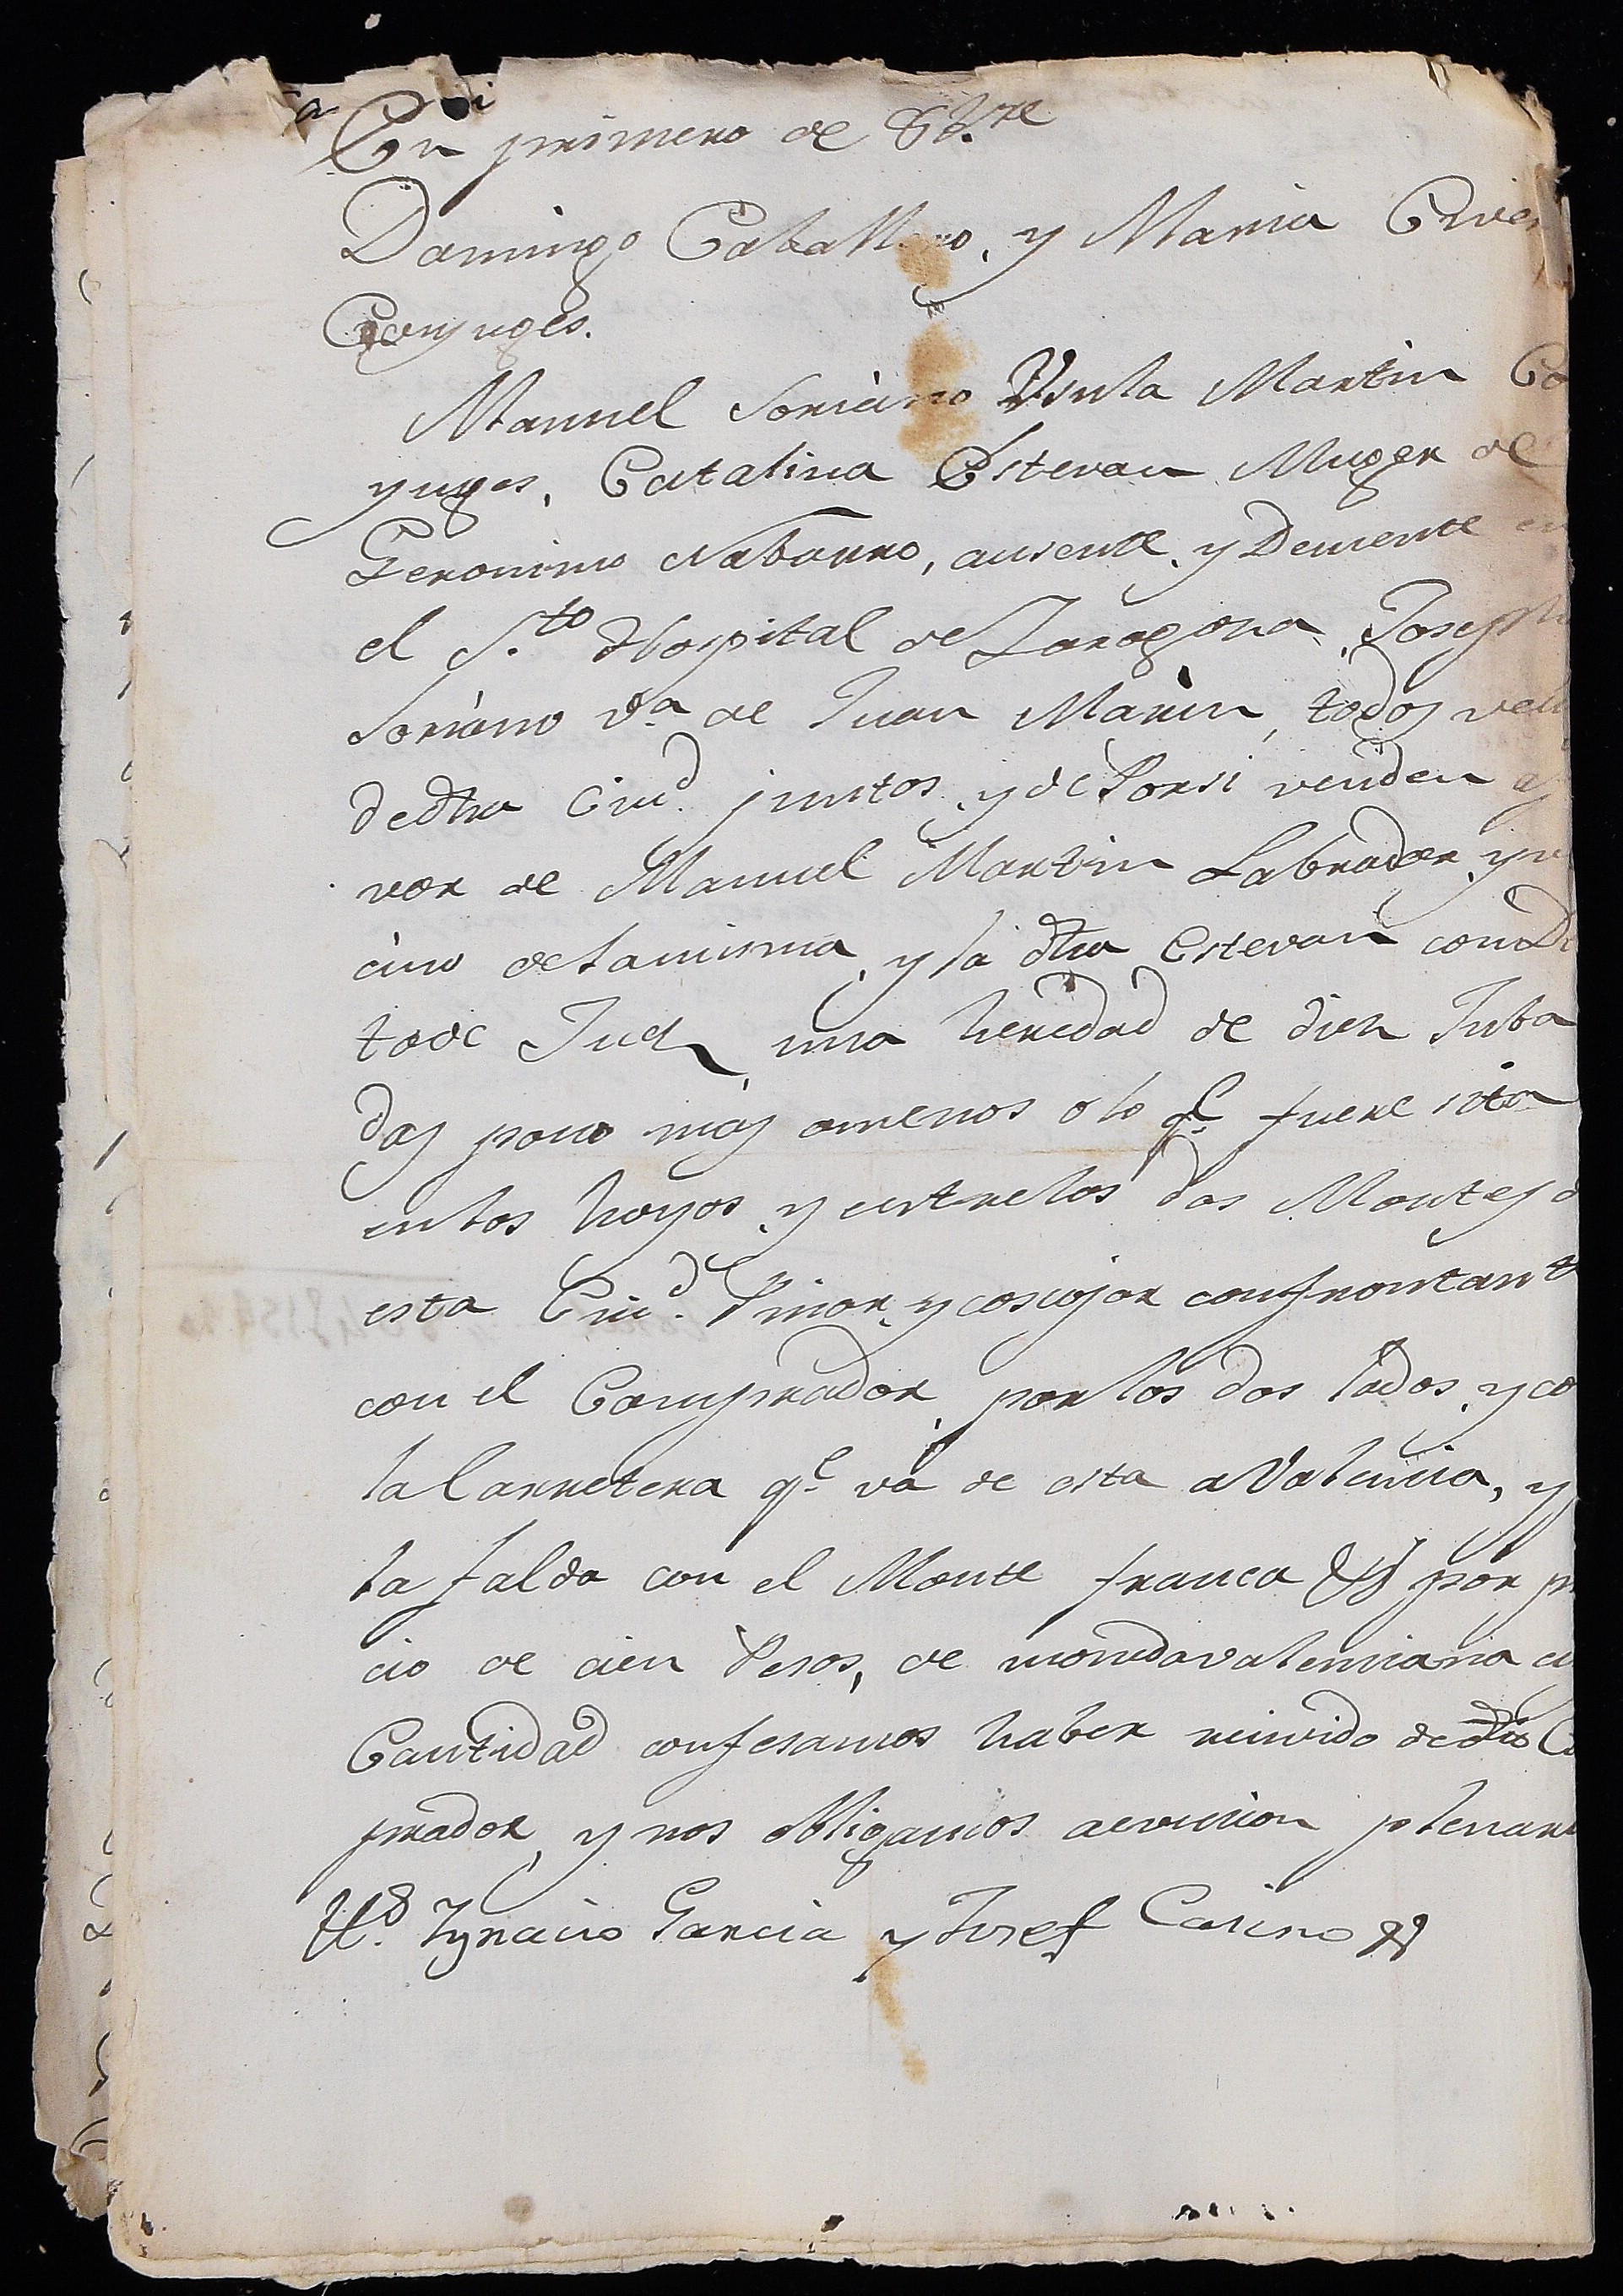 En primero de 8b.re
Domingo Caballero, y Maria Cive
Conjuges.
Manuel Soriano Vrsula Martin Co
yuges, Catalina Estevan Muger de
Geronimo Nabarro, ausente, y Demente en
el S.to Hospital de Zaragoza, Joseph
Soriano v.a de Juan Marin, todos veci
de dha Ciud. juntos, y de Porsi venden af
vor de Manuel Martin Labrador, y ve
cino de la misma, y la dha Estevan con De
to de Juez, una heredad de diez Juba
das poco mas o menos o lo q.e fuere sita
en los hoyos, y entre los dos Montes d
esta Ciud. Pinar, y coscojar confrontant
con el Comprador, por los dos lados, y co
la Carretera q.e va de esta a Valencia, y
la falda con el Monte franca &.a por pre
cio de cien Pesos, de moneda valenciana cu
Cantidad confesamos haber recivido de dho Co
prador, y nos obligamos a eviccion plenari
Ygnacio Garcia y Josef Casino &.a